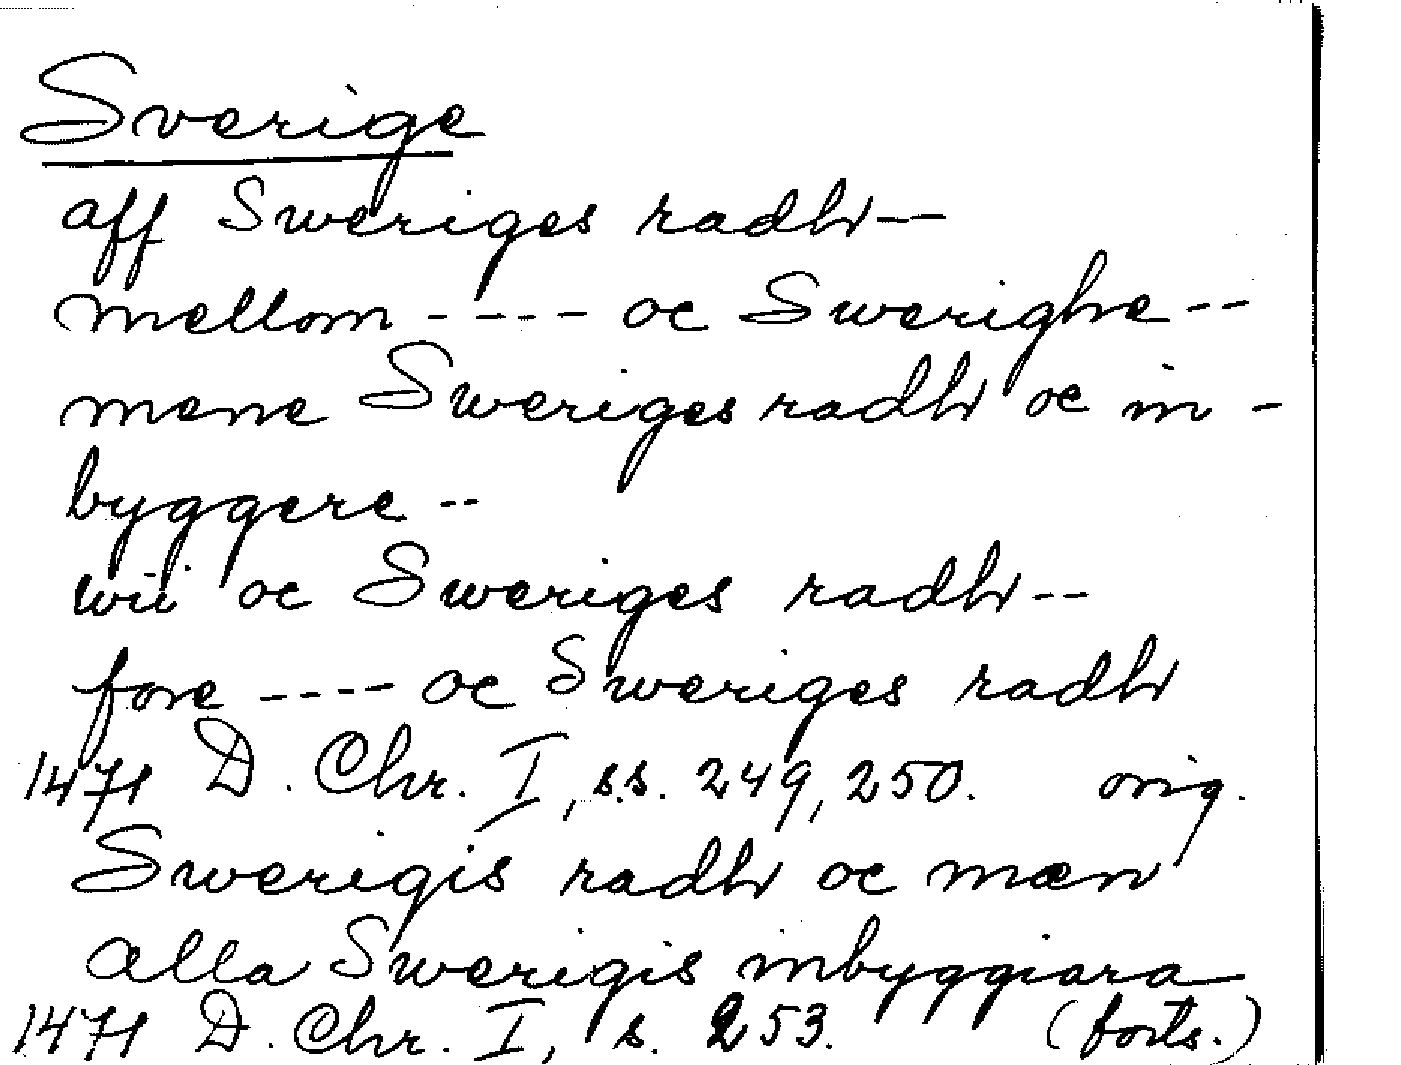 Sverige
aff Sweriges radh --
mellom - - - - oc Swerighe --
mene Sweriges radh oc in -
byggere --
wii oc Sweriges radh --
fore - - - - oc Sweriges radh
1471 D. Chr. I, s.s. 249, 250. orig.
Swerigis radh oc mæn
alla Swerigis inbyggiara
1471 D. Chr. I, s. 253. (forts.)